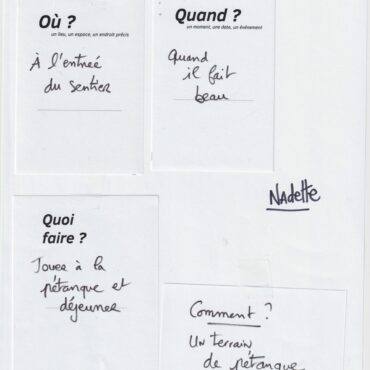 Où ?
un lieu, un espace, un endroit précis
À l'entrée
du sentier
Quand ?
un moment, une date, un événement
Quand
il fait
beau
Nadette
Quoi
faire ?
Jouer à la
pétanque et
déjeuner
Comment ?
Un terrain
de pétanque